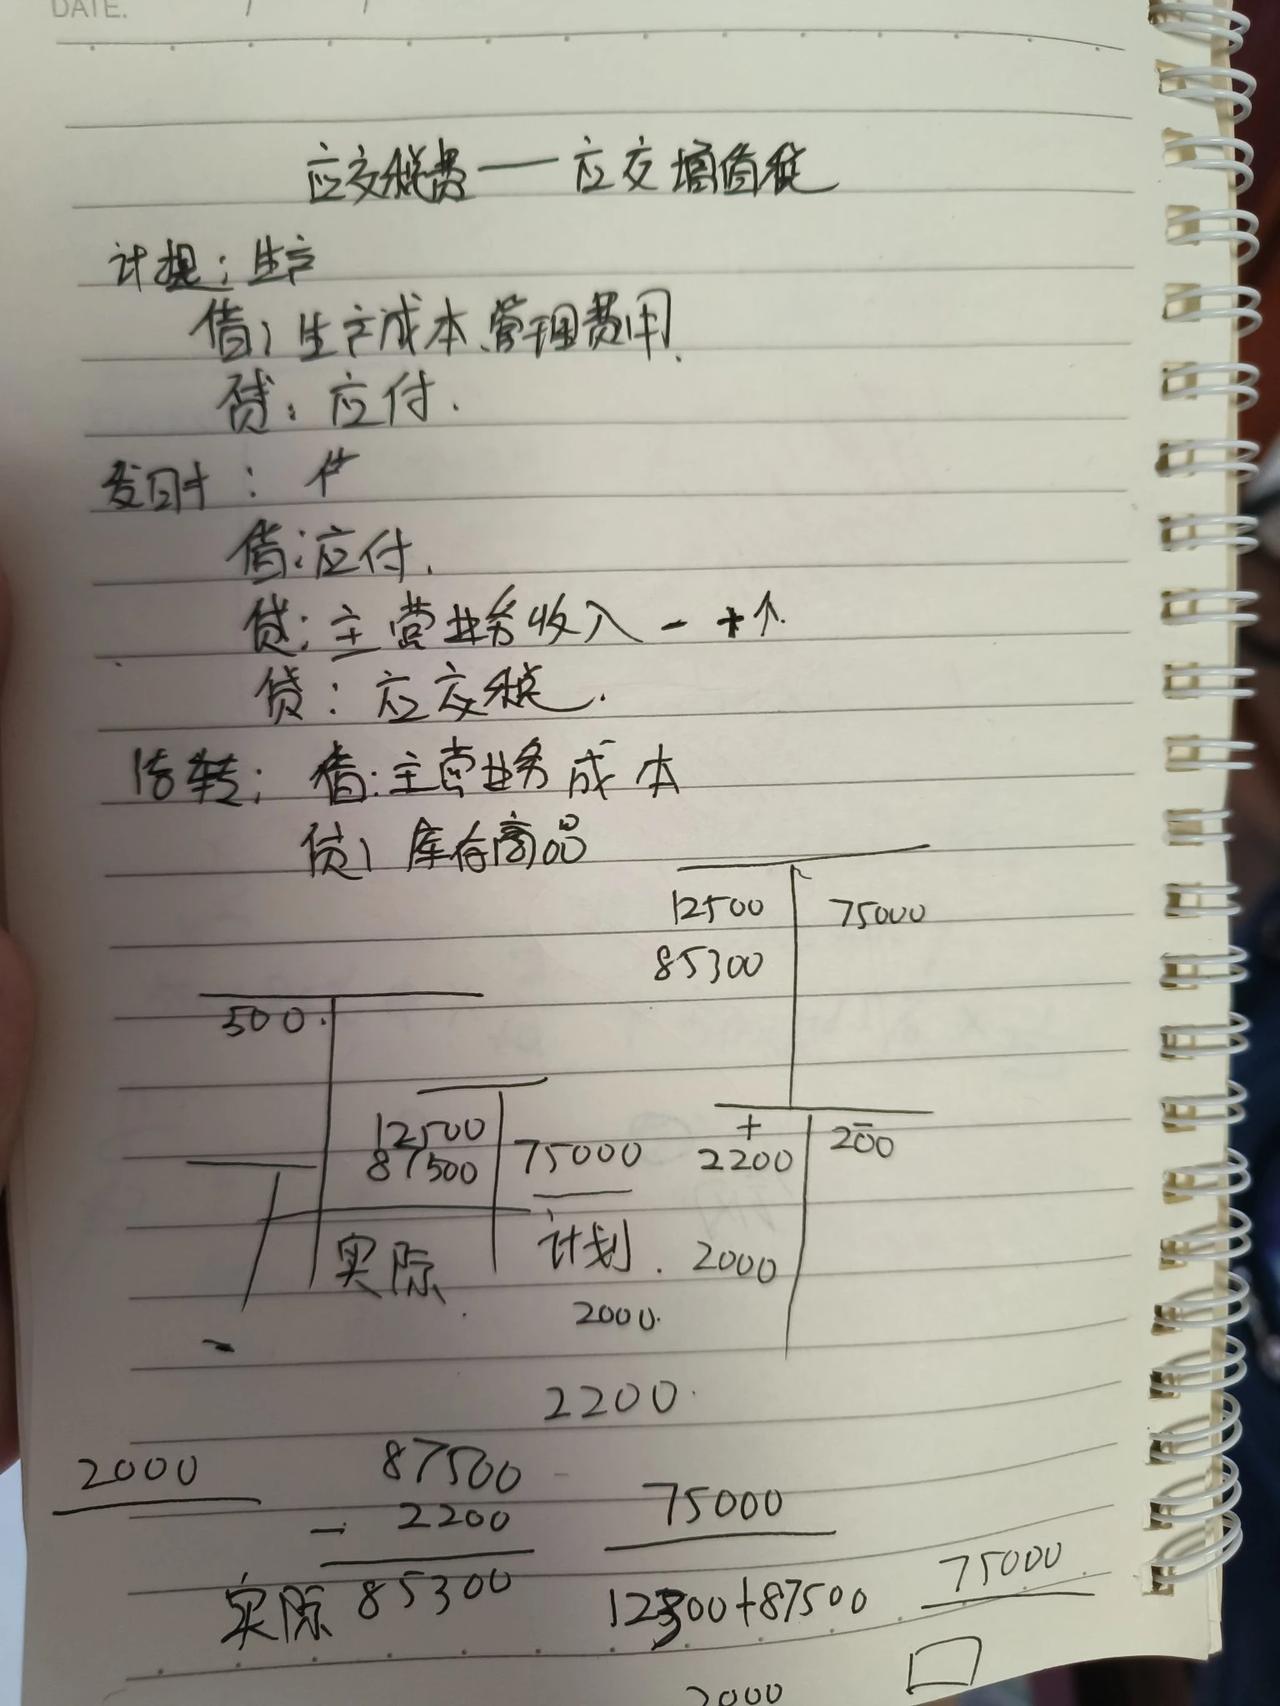 DATE. / /
应交税费——应交增值税
计提：生产
借：生产成本、管理费用.
贷：应付.
发时：
借：应付.
贷：主营业务收入 - +↑.
贷：应交税.
结转：借：主营业务成本
贷：库存商品
12500 75000
85300
500.
12500 75000
87500
+
2200 200
实际 计划. 2000
2000.
-
2200.
2000 87500 75000
- 2200
实际 85300 12300+87500 75000
2000